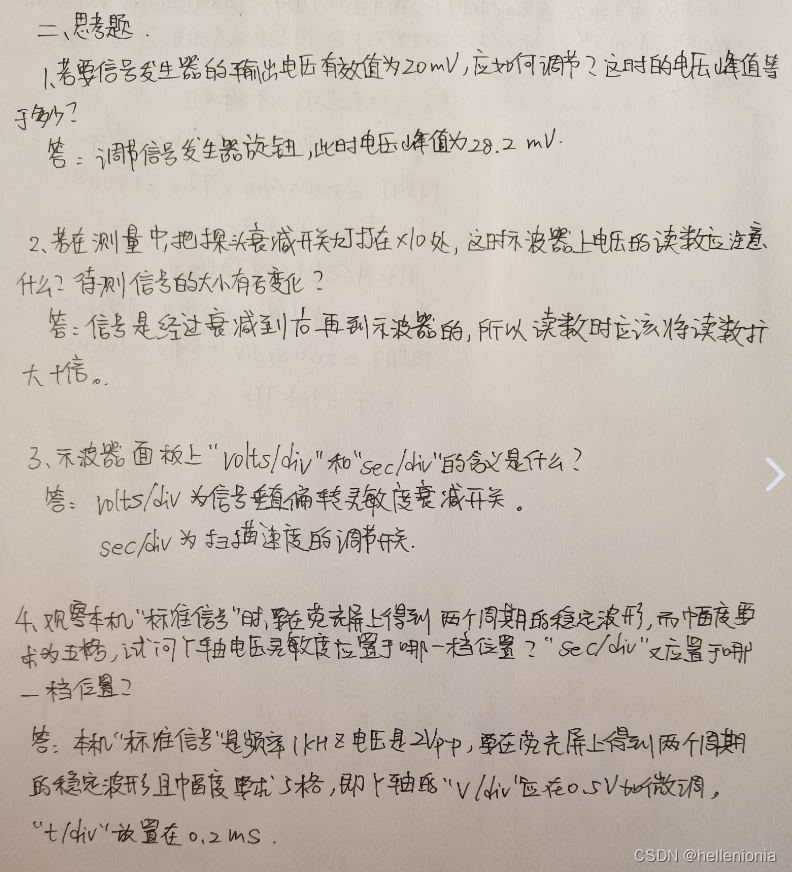 二、思考题.
1、若要信号发生器的输出电压有效值为20mV,应如何调节?这时的电压峰值等
于多少?
答:调节信号发生器旋钮,此时电压峰值为28.2 mV.
2、若在测量中,把探头衰减开关打在×10处,这时示波器上电压的读数应注意
什么?待测信号的大小有否变化?
答:信号是经过衰减到后再到示波器的,所以读数时应该将读数扩
大十倍。
3、示波器面板上"volts/div"和"sec/div"的含义是什么?
答:volts/div为信号垂直偏转灵敏度衰减开关。
sec/div为扫描速度的调节开关.
4、观察本机"标准信号"时,要在荧光屏上得到两个周期的稳定波形,而幅度要
求为五格,试问Y轴电压灵敏度位置于哪一档位置?"sec/div"又应置于哪
一档位置?
答:本机"标准信号"是频率1KHZ电压是2Vp-p,要在荧光屏上得到两个周期
的稳定波形且幅度要求5格,即Y轴的"V/div"应在0.5V加微调,
"t/div"放置在0.2ms.
CSDN @hellenionia